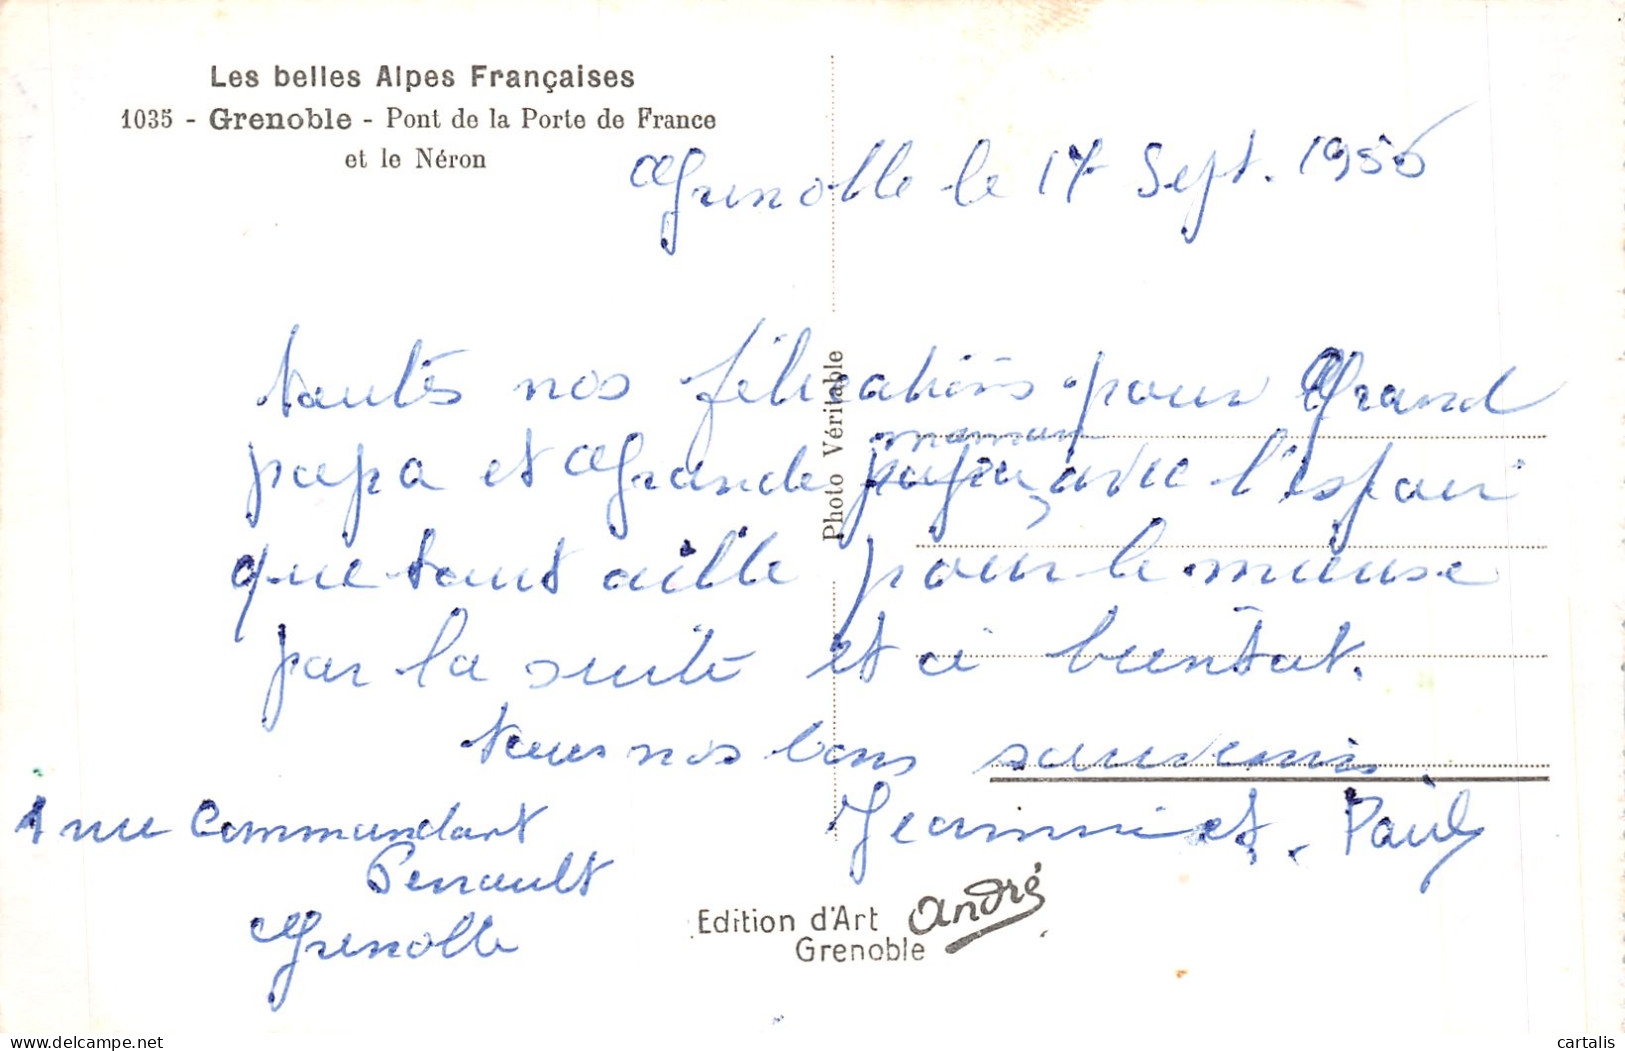 Les belles Alpes Françaises
1035 - Grenoble - Pont de la Porte de France
et le Néron
Grenoble le 17 Sept. 1955
toutes nos félicitations pour Grand
maman
papa et Grande papa, avec l'espoir
que tout aille pour le mieuse
par la suite et à bientôt.
tous nos bons souvenirs
1 rue Commandant
Perrault
Grenoble
Jeannie et Paul
Photo Véritable
Edition d'Art André
Grenoble
cartalis